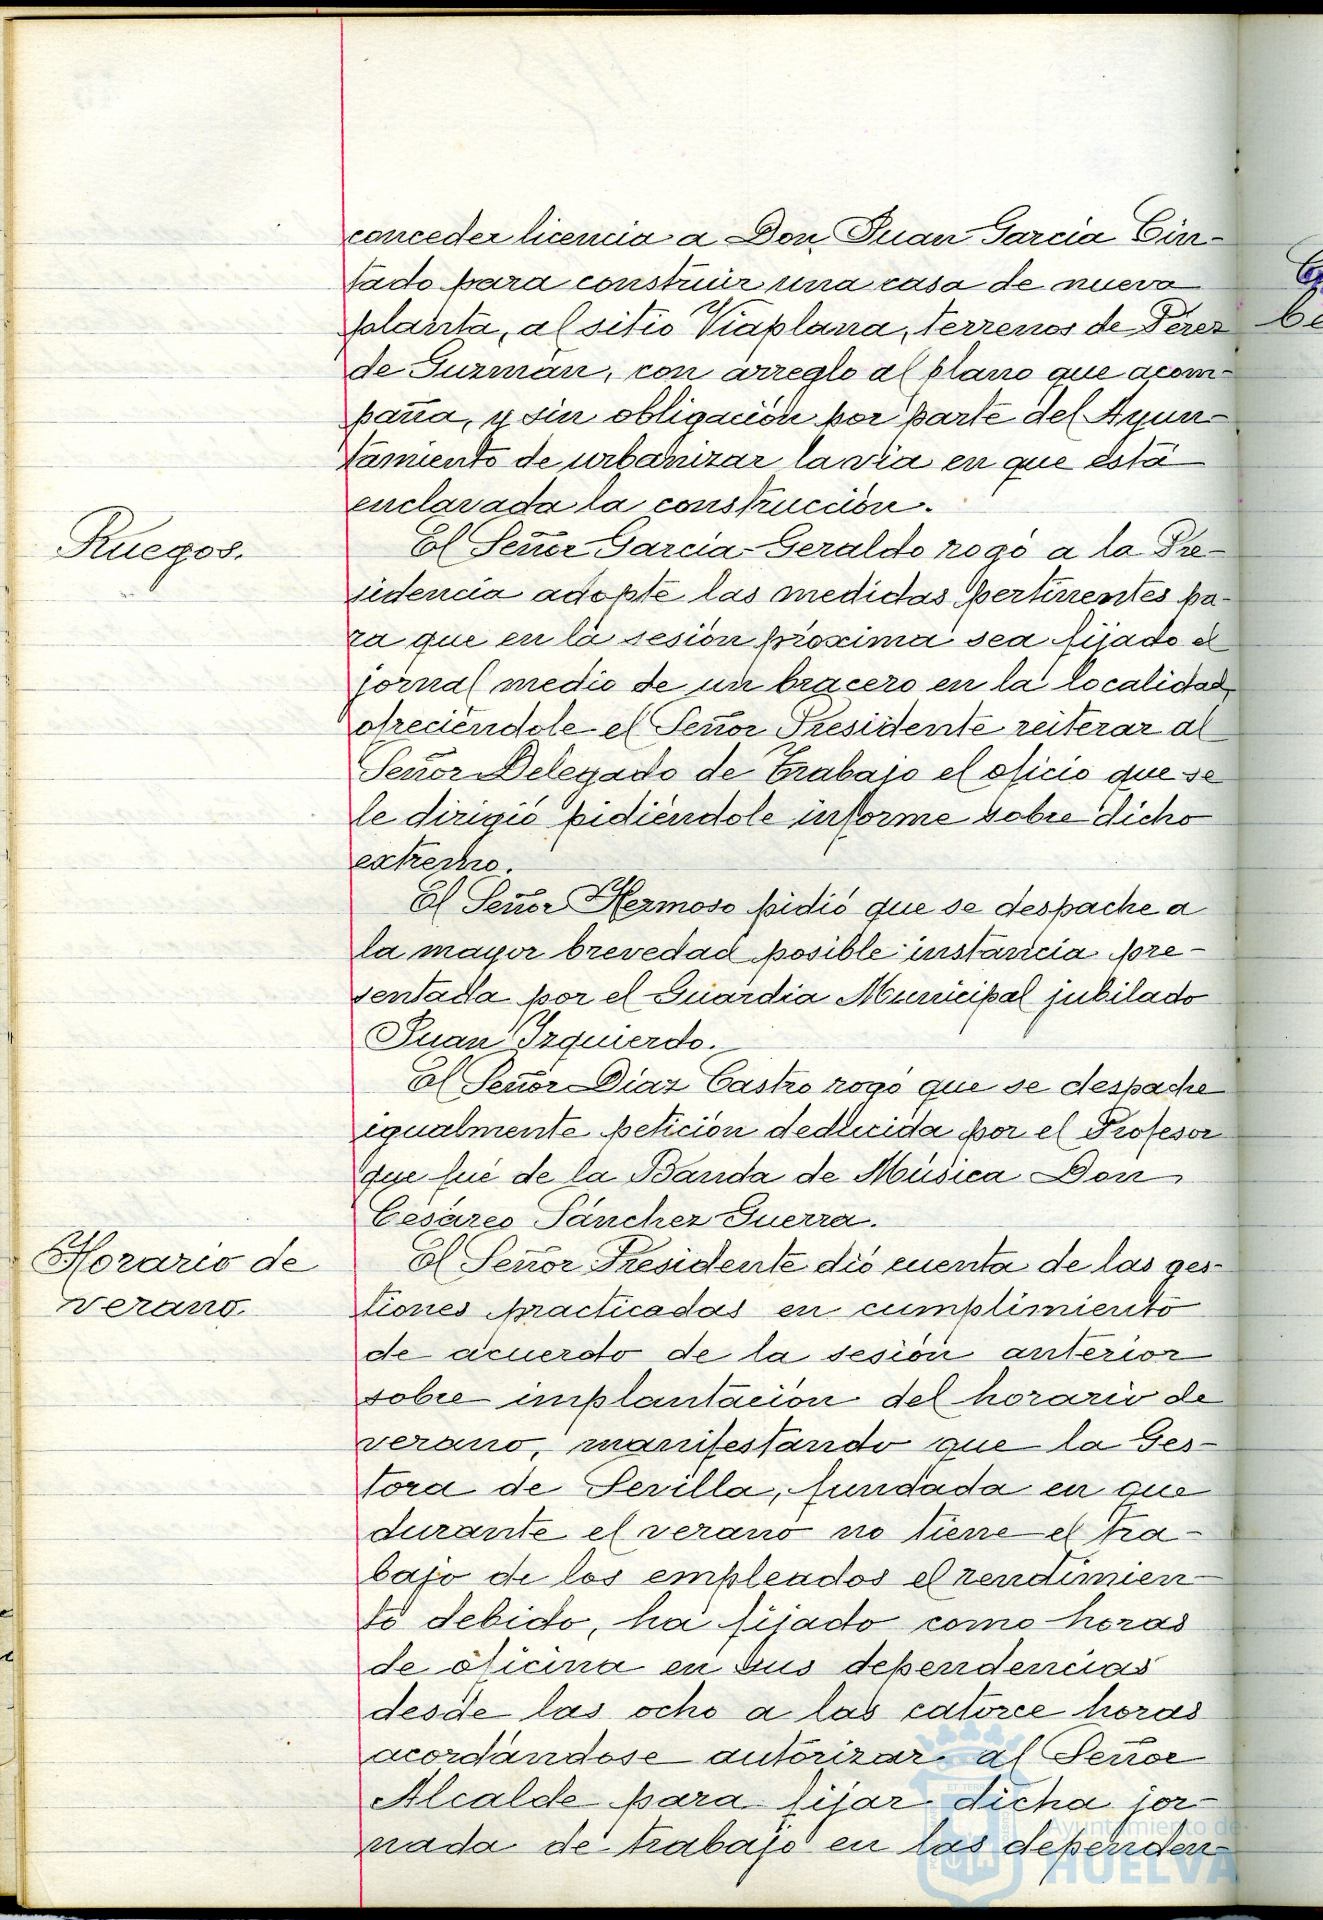 conceder licencia a Don Juan García Cin-
tado para construir una casa de nueva
planta, al sitio Viaplana, terrenos de Pérez
de Guzmán, con arreglo al plano que acom-
paña, y sin obligación por parte del Ayun-
tamiento de urbanizar la vía en que está
enclavada la construcción.
Ruegos.
El Señor García-Geraldo rogó a la Pre-
sidencia adopte las medidas pertinentes pa-
ra que en la sesión próxima sea fijado el
jornal medio de un bracero en la localidad,
ofreciéndole el Señor Presidente reiterar al
Señor Delegado de Trabajo el oficio que se
le dirigió pidiéndole informe sobre dicho
extremo.
El Señor Hermoso pidió que se despache a
la mayor brevedad posible instancia pre-
sentada por el Guardia Municipal jubilado
Juan Izquierdo.
El Señor Díaz Castro rogó que se despache
igualmente petición deducida por el Profesor
que fué de la Banda de Música Don
Cesáreo Sánchez Guerra.
Horario de
verano.
El Señor Presidente dió cuenta de las ges-
tiones practicadas en cumplimiento
de acuerdo de la sesión anterior
sobre implantación del horario de
verano, manifestando que la Ges-
tora de Sevilla, fundada en que
durante el verano no tiene el tra-
bajo de los empleados el rendimien-
to debido, ha fijado como horas
de oficina en sus dependencias
desde las ocho a las catorce horas
acordándose autorizar al Señor
Alcalde para fijar dicha jor-
nada de trabajo en las dependen-
Ayuntamiento de
HUELVA